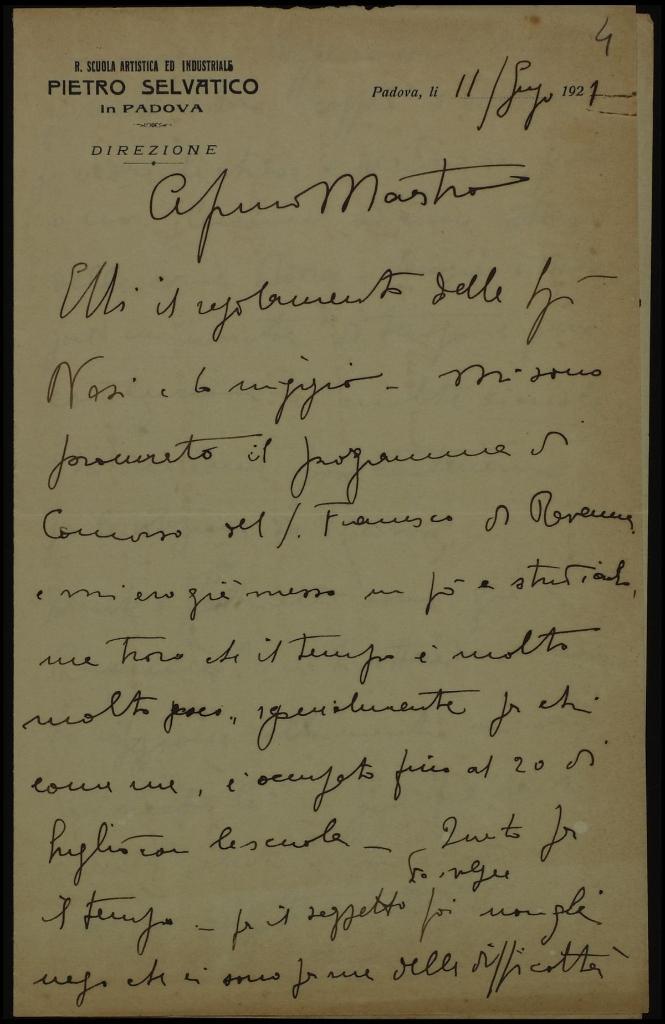 4
R. SCUOLA ARTISTICA ED INDUSTRIALE
PIETRO SELVATICO
In PADOVA
DIREZIONE
Padova, li 11/ 1921
Maestro
Ebbi il regolamento delle
Nasi e lo ringrazio - Mi sono
procurato il programma di
Concorso del S. Francesco di Ravenna
e mi ero già messo un pò a studiarlo,
ma trovo che il tempo è molto
molto poco, specialmente per chi
come me, è occupato fino al 20 di
luglio con la scuola - Questo per
il tempo - per il soggetto poi non gli
nego che ci sono per me delle difficoltà